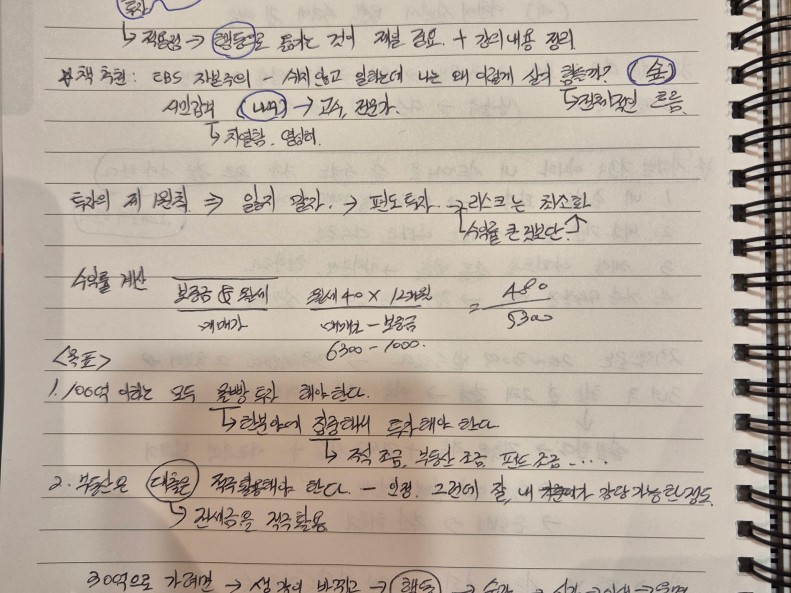 투자
↳ 적용점 → 행동으로 옮기는 것이 제일 중요. + 강의내용 정리
책 추천: EBS 자본주의 - 쉬지않고 일하는데 나는 왜 이렇게 살기 힘들까? (金)
↳ 전체적인 흐름
→ 고수, 전문가.
↳ 치열함. 열심히.
투자의 제 1원칙 ⇒ 잃지 말자. → 펀드투자. → 리스크는 최소화
↳ 수익률 큰 것보단.
수익률 계산
보증금 & 월세 월세 40 × 12개월 = 480
매매가 매매가 - 보증금 5300
6300 - 1000.
<목표>
1. 100억 이하는 모두 몰빵 투자 해야한다.
↳ 한분야에 집중해서 투자해야 한다
↳ 주식 조금, 부동산 조금, 펀드 조금 ....
2. 부동산은 대출을 적극활용해야 한다. - 인정. 그런데 잘, 내 가 감당가능한 정도
↳ 전세금을 적극 활용
30억으로 가려면 → 생각이 바뀌고 → 행동 → 습관